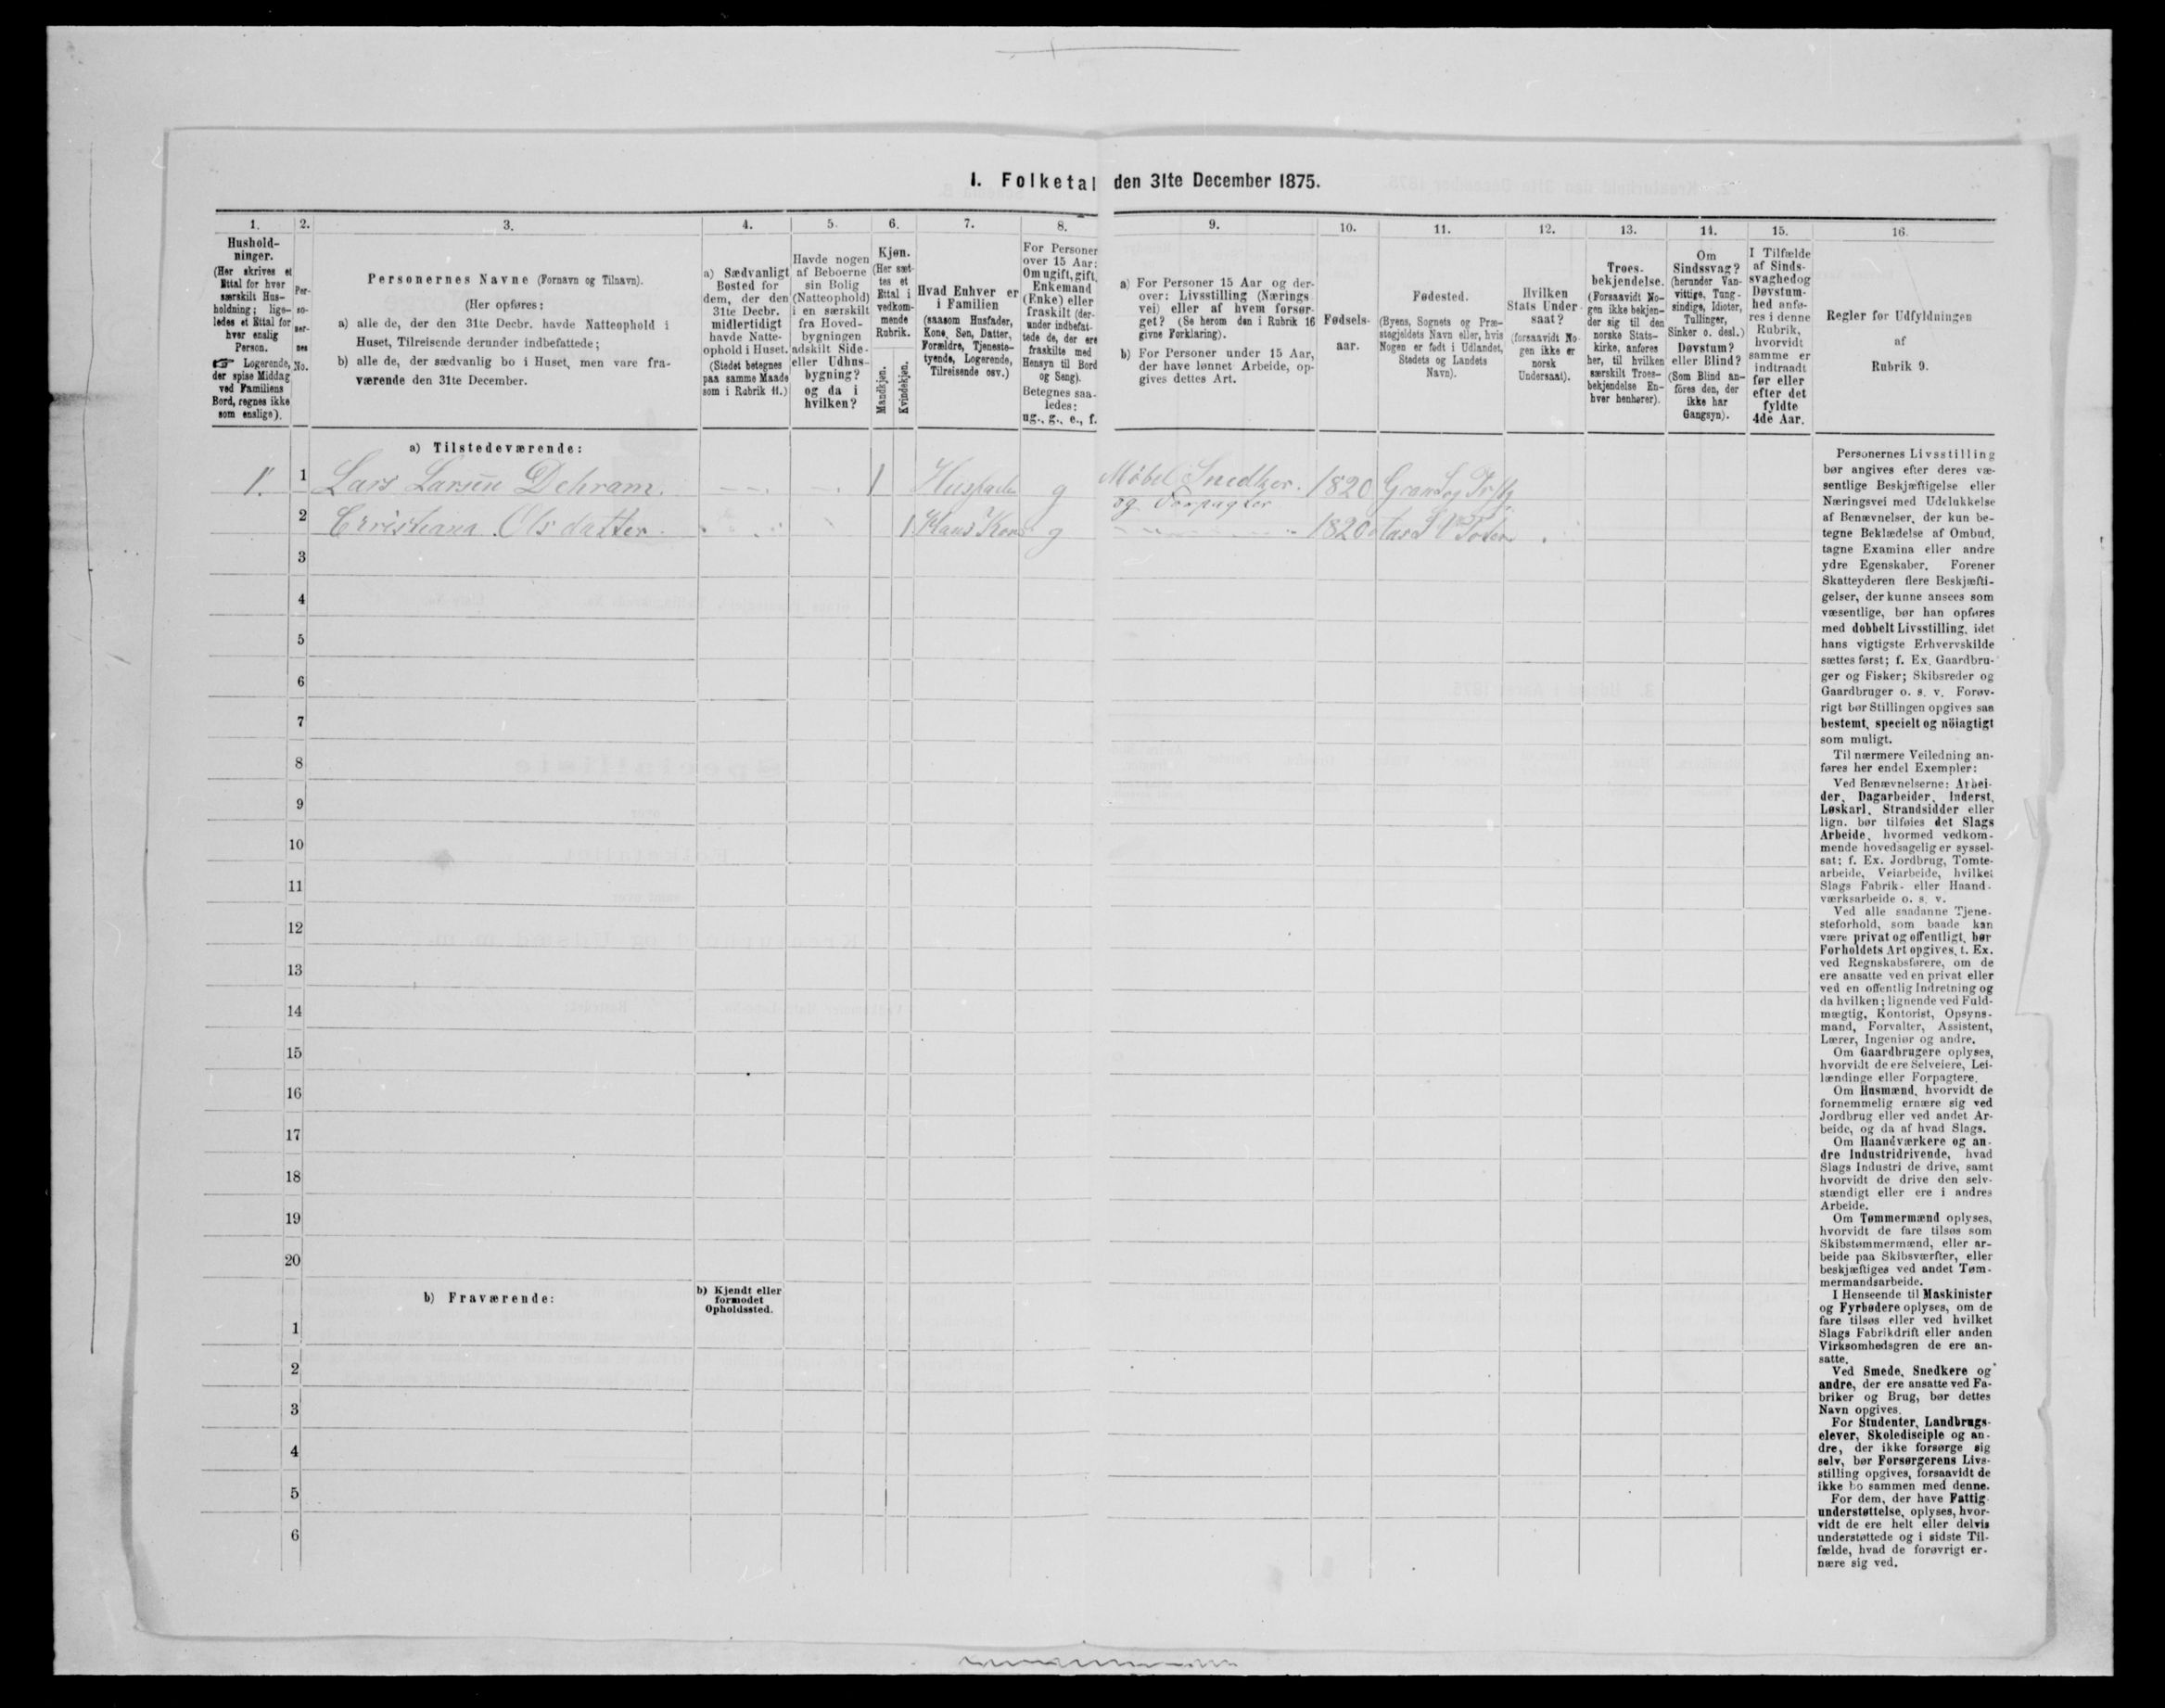 I. Folketal den 31te December 1875.
1.
Hushold-
ninger.
(Her skrives et
Ettal for hver
særskilt Hus-
holdning; lige-
ledes et Ettal for
hver enslig
Person.
☞ Logerende,
der spise Middag
ved Familiens
Bord, regnes ikke
som enslige).
2.
Per-
so-
ner-
nes
No.
3.
Personernes Navne (Fornavn og Tilnavn).
(Her opføres:
a) alle de, der den 31te Decbr. havde Natteophold i
Huset, Tilreisende derunder indbefattede;
b) alle de, der sædvanlig bo i Huset, men vare fra-
værende den 31te December.
4.
a) Sædvanligt
Bosted for
dem, der den
31te Decbr.
midlertidigt
havde Natte-
ophold i Huset.
(Stedet betegnes
paa samme Maade
som i Rubrik 11.)
5.
Havde nogen
af Beboerne
sin Bolig
(Natteophold)
i en særskilt
fra Hoved-
bygningen
adskilt Side-
eller Udhus-
bygning?
og da i
hvilken?
6.
Kjøn.
(Her sæt-
tes et
Ettal i
vedkom-
mende
Rubrik.
Mandkjøn.
Kvindekjøn.
7.
Hvad Enhver er
i Familien
(saasom Husfader,
Kone, Søn, Datter,
Forældre, Tjeneste-
tyende, Logerende,
Tilreisende osv.)
8.
For Personer
over 15 Aar:
Om ugift, gift,
Enkemand
(Enke) eller
fraskilt (der-
under indbefat-
tede de, der ere
fraskilte med
Hensyn til Bord
og Seng).
Betegnes saa-
ledes:
ug., g., e., f.
9.
a) For Personer 15 Aar og der-
over: Livsstilling (Nærings-
vei) eller af hvem forsør-
get? (Se herom den i Rubrik 16
givne Forklaring).
b) For Personer under 15 Aar,
der have lønnet Arbeide, op-
gives dettes Art.
10.
Fødsels-
aar.
11.
Fødested.
(Byens, Sognets og Præ-
stegjeldets Navn eller, hvis
Nogen er født i Udlandet,
Stedets og Landets
Navn).
12.
Hvilken
Stats Under-
saat?
(forsaavidt No-
gen ikke er
norsk
Undersaat).
13.
Troes-
bekjendelse.
(Forsaavidt No-
gen ikke bekjen-
der sig til den
norske Stats-
kirke, anføres
her, til hvilken
særskilt Troes-
bekjendelse En-
hver henhører).
14.
Om
Sindssvag?
(herunder Van-
vittige, Tung-
sindige, Idioter,
Tullinger,
Sinker o. desl.)
Døvstum?
eller Blind?
(Som Blind an-
føres den, der
ikke har
Gangsyn).
15.
I Tilfælde
af Sinds-
svaghed og
Døvstum-
hed anfø-
res i denne
Rubrik,
hvorvidt
samme er
indtraadt
før eller
efter det
fyldte
4de Aar.
16.
Regler for Udfyldningen
af
Rubrik 9.
a) Tilstedeværende:
1. 1 Lars Larsen Dehram. 1 Husfader g Møbel Snedker 1820
og Forpagter
2 Cristiana Olsdatter 1 Hans Kone g 1820
3
4
5
6
7
8
9
10
11
12
13
14
15
16
17
18
19
20
b) Fraværende:
b) Kjendt eller
formodet
Opholdssted.
1
2
3
4
5
6
Personernes Livsstilling
bør angives efter deres væ-
sentlige Beskjæftigelse eller
Næringsvei med Udelukkelse
af Benævnelser, der kun be-
tegne Beklædelse af Ombud,
tagne Examina eller andre
ydre Egenskaber. Forener
Skatteyderen flere Beskjæfti-
gelser, der kunne ansees som
væsentlige, bør han opføres
med dobbelt Livsstilling, idet
hans vigtigste Erhvervskilde
sættes først; f. Ex. Gaardbru-
ger og Fisker; Skibsreder og
Gaardbruger o. s. v. Forøv-
rigt bør Stillingen opgives saa
bestemt, specielt og nöiagtigt
som muligt.
Til nærmere Veiledning an-
føres her endel Exempler:
Ved Benævnelserne: Arbei-
der, Dagarbeider, Inderst,
Løskarl, Strandsidder eller
lign. bør tilføies det Slags
Arbeide, hvormed vedkom-
mende hovedsagelig er syssel-
sat; f. Ex. Jordbrug, Tomte-
arbeide, Veiarbeide, hvilket
Slags Fabrik- eller Haand-
værksarbeide o. s. v.
Ved alle saadanne Tjene-
steforhold, som baade kan
være privat og offentligt, bør
Forholdets Art opgives, t. Ex.
ved Regnskabsførere, om de
ere ansatte ved en privat eller
ved en offentlig Indretning og
da hvilken; lignende ved Fuld-
mægtig, Kontorist, Opsyns-
mand, Forvalter, Assistent,
Lærer, Ingeniør og andre.
Om Gaardbrugere oplyses,
hvorvidt de ere Selveiere, Lei-
lændinge eller Forpagtere.
Om Husmænd, hvorvidt de
fornemmelig ernære sig ved
Jordbrug eller ved andet Ar-
beide, og da af hvad Slags.
Om Haandværkere og an-
dre Industridrivende, hvad
Slags Industri de drive, samt
hvorvidt de drive den selv-
stændigt eller ere i andres
Arbeide.
Om Tømmermænd oplyses,
hvorvidt de fare tilsøs som
Skibstømmermænd, eller ar-
beide paa Skibsværfter, eller
beskjæftiges ved andet Tøm-
mermandsarbeide.
I Henseende til Maskinister
og Fyrbødere oplyses, om de
fare tilsøs eller ved hvilket
Slags Fabrikdrift eller anden
Virksomhedsgren de ere an-
satte.
Ved Smede, Snedkere og
andre, der ere ansatte ved Fa-
briker og Brug, bør dettes
Navn opgives.
For Studenter, Landbrugs-
elever, Skoledisciple og an-
dre, der ikke forsørge sig
selv, bør Forsørgerens Livs-
stilling opgives, forsaavidt de
ikke bo sammen med denne.
For dem, der have Fattig-
understøttelse, oplyses, hvor-
vidt de ere helt eller delvis
understøttede og i sidste Til-
fælde, hvad de forøvrigt er-
nære sig ved.